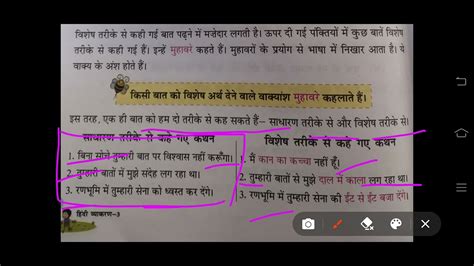 विशेष तरीके से कही गई बात पढ़ने में मजेदार लगती है। ऊपर दी गई पंक्तियों में कुछ बातें विशेष
तरीके से कही गई हैं। इन्हें मुहावरे कहते हैं। मुहावरों के प्रयोग से भाषा में निखार आता है। ये
वाक्य के अंश होते हैं।
किसी बात को विशेष अर्थ देने वाले वाक्यांश मुहावरे कहलाते हैं।
इस तरह, एक ही बात को हम दो तरीके से कह सकते हैं– साधारण तरीके से और विशेष तरीके से।
साधारण तरीके से कहे गए कथन
1. बिना सोचे तुम्हारी बात पर विश्वास नहीं करूँगा।
2. तुम्हारी बातों में मुझे संदेह लग रहा था।
3. रणभूमि में तुम्हारी सेना को ध्वस्त कर देंगे।
विशेष तरीके से कहे गए कथन
1. मैं कान का कच्चा नहीं हूँ।
2. तुम्हारी बातों से मुझे दाल में काला लग रहा था।
3. रणभूमि में तुम्हारी सेना की ईंट से ईंट बजा देंगे।
हिंदी व्याकरण–3